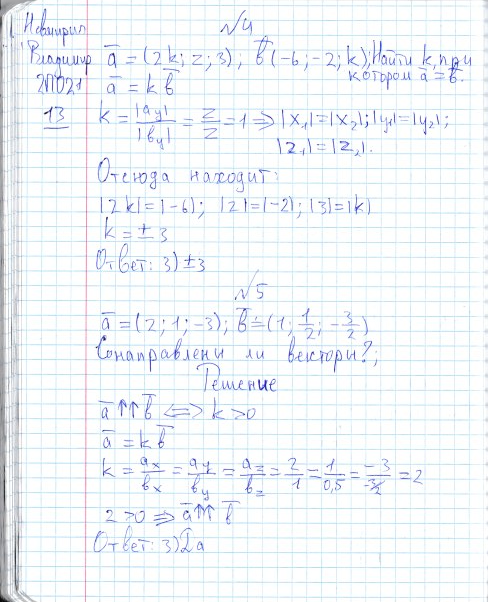 №4
Владимир ā = (2k; 2; 3); b̄(-6; -2; k), Найти k, при
котором ā = b̄.
2ПО21 ā = k b̄
13 k = |ay|/|by| = 2/2 = 1 ⟹ |x₁|=|x₂|; |y₁|=|y₂|;
|z₁|=|z₂|.
Отсюда находит:
|2k|=|-6|; |2|=|-2|; |3|=|k|
k = ±3
Ответ: 3) ±3
№5
ā = (2; 1; -3); b̄ = (1; 1/2; -3/2)
Сонаправлены ли векторы?;
Решение
ā ↑↑ b̄ ⟺ k > 0
ā = k b̄
k = ax/bx = ay/by = az/bz = 2/1 = 1/0,5 = -3/-3/2 = 2
2 > 0 ⟹ ā ↑↑ b̄
Ответ: 3) Да